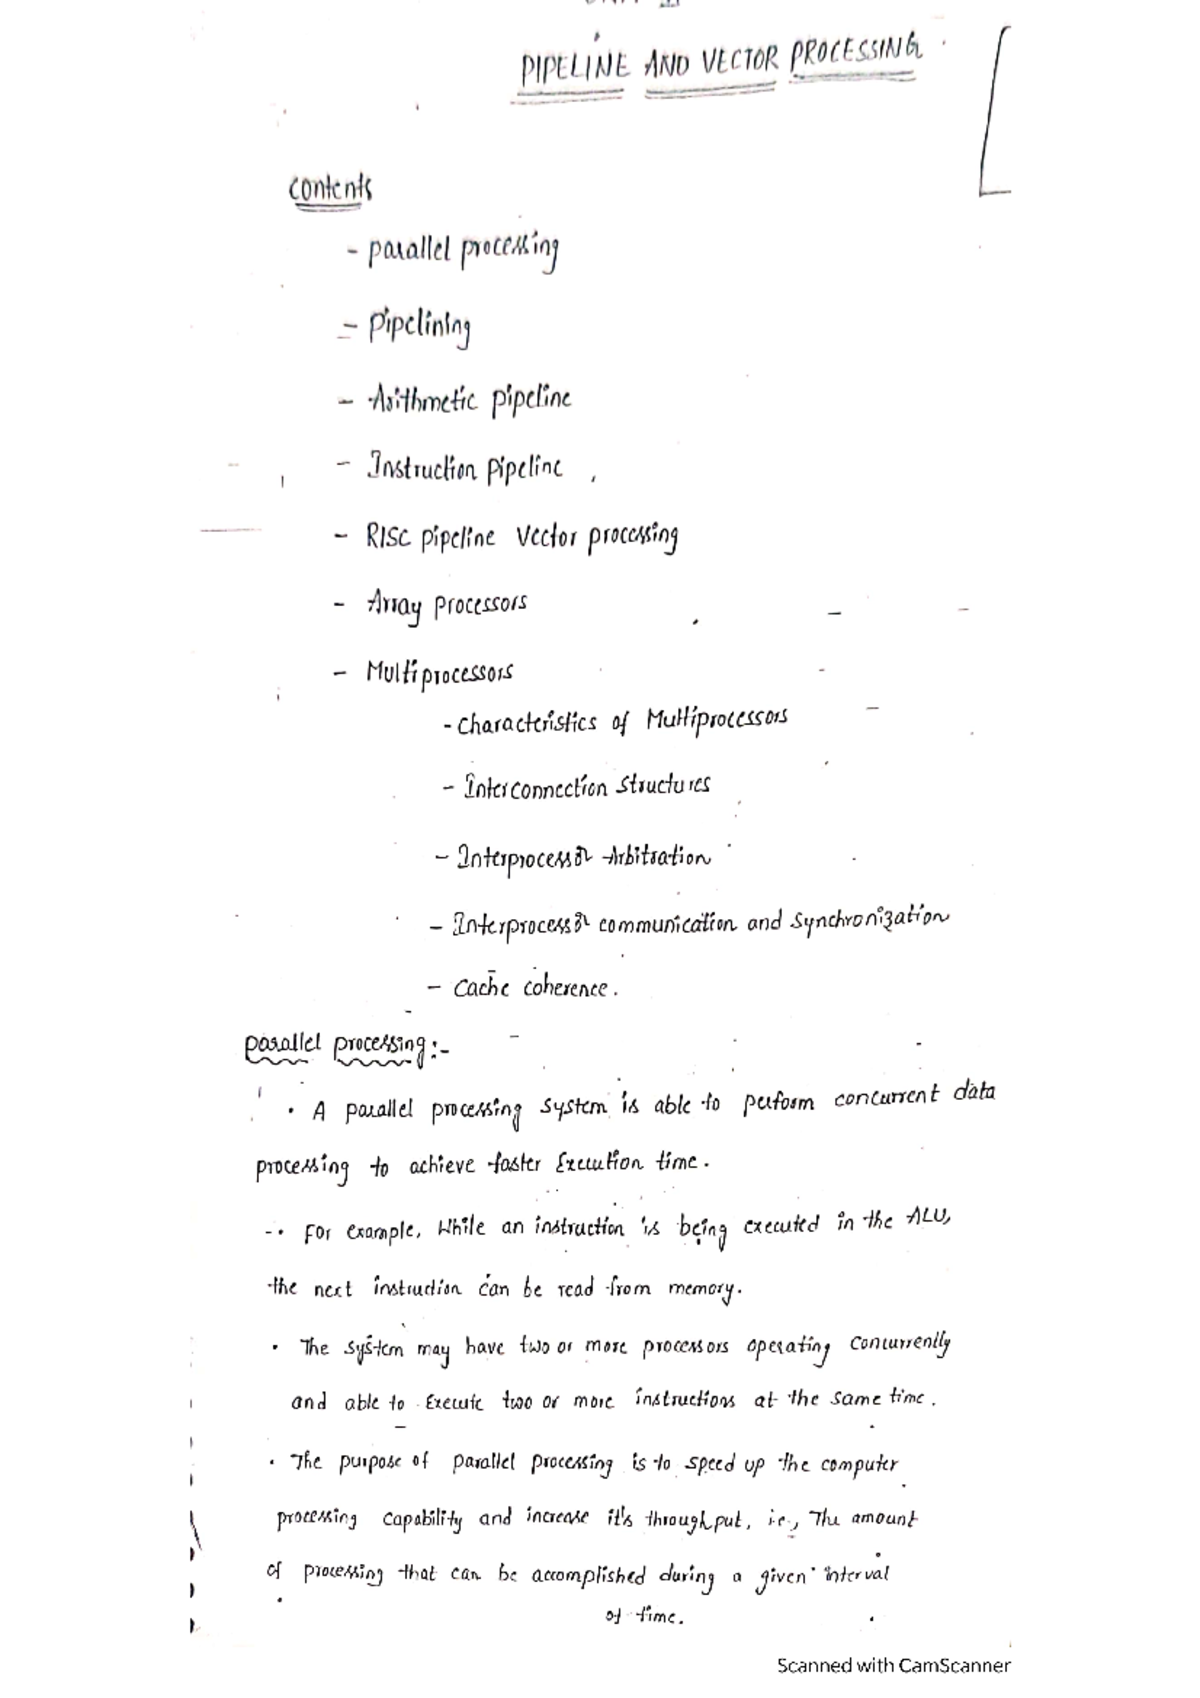 PIPELINE AND VECTOR PROCESSING
contents
- parallel processing
- Pipelining
- Arithmetic pipeline
- Instruction pipeline
- RISC pipeline Vector processing
- Array processors
- Multiprocessors
- characteristics of Multiprocessors
- Interconnection structures
- Interprocessor Arbitration
- Interprocessor communication and synchronization
- Cache coherence.
parallel processing:-
• A parallel processing system is able to perform concurrent data
processing to achieve faster Execution time.
-• For example, While an instruction is being executed in the ALU,
the next instruction can be read from memory.
• The system may have two or more processors operating concurrently
and able to Execute two or more instructions at the same time.
• The purpose of parallel processing is to speed up the computer
processing capability and increase it's throughput, i.e., The amount
of processing that can be accomplished during a given interval
of time.
Scanned with CamScanner